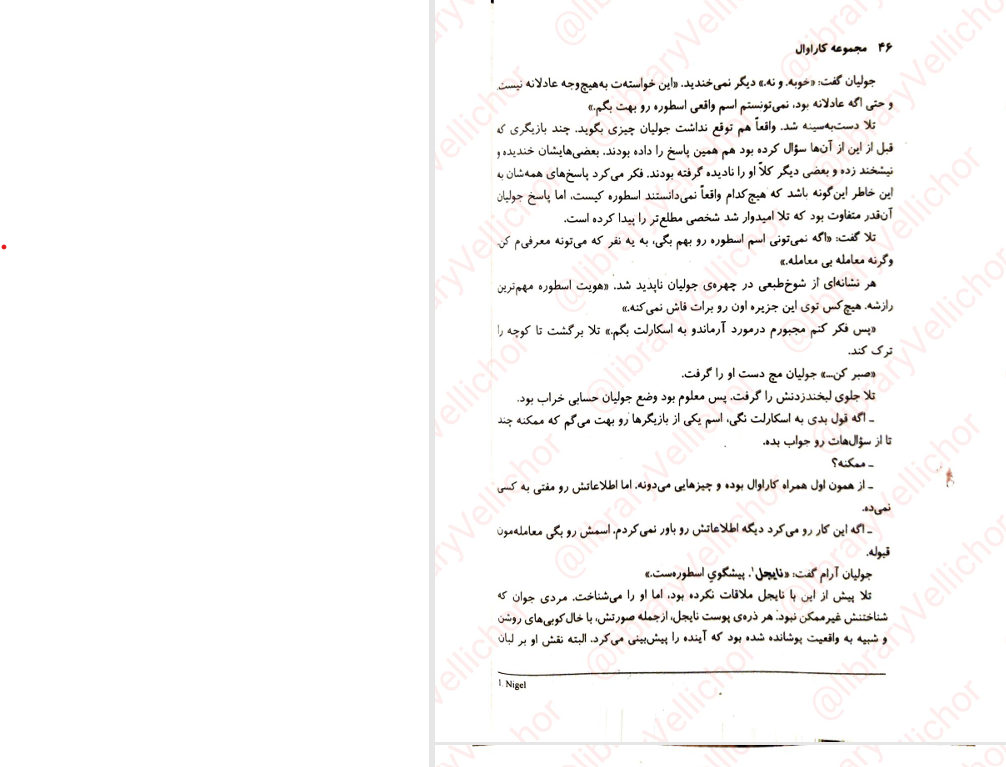 ۴۶ مجموعه کاراوال
جولیان گفت: «خوبه. و نه.» دیگر نمی‌خندید. «این خواسته‌ت به‌هیچ‌وجه عادلانه نیست.
و حتی اگه عادلانه بود، نمی‌تونستم اسم واقعی اسطوره رو بهت بگم.»
تلا دست‌به‌سینه شد. واقعاً هم توقع نداشت جولیان چیزی بگوید. چند بازیگری که
قبل از این از آن‌ها سؤال کرده بود هم همین پاسخ را داده بودند. بعضی‌هایشان خندیده و
نیشخند زده و بعضی دیگر کلاً او را نادیده گرفته بودند. فکر می‌کرد پاسخ‌های همه‌شان به
این خاطر این‌گونه باشد که هیچ‌کدام واقعاً نمی‌دانستند اسطوره کیست، اما پاسخ جولیان
آن‌قدر متفاوت بود که تلا امیدوار شد شخصی مطلع‌تر را پیدا کرده است.
تلا گفت: «اگه نمی‌تونی اسم اسطوره رو بهم بگی، به یه نفر که می‌تونه معرفی‌م کن.
وگرنه معامله بی معامله.»
هر نشانه‌ای از شوخ‌طبعی در چهره‌ی جولیان ناپدید شد. «هویت اسطوره مهم‌ترین
رازشه. هیچ‌کس توی این جزیره اون رو برات فاش نمی‌کنه.»
«پس فکر کنم مجبورم درمورد آرماندو به اسکارلت بگم.» تلا برگشت تا کوچه را
ترک کند.
«صبر کن...» جولیان مچ دست او را گرفت.
تلا جلوی لبخندزدنش را گرفت. پس معلوم بود وضع جولیان حسابی خراب بود.
ـ اگه قول بدی به اسکارلت نگی، اسم یکی از بازیگرها رو بهت می‌گم که ممکنه چند
تا از سؤال‌هات رو جواب بده.
ـ ممکنه؟
ـ از همون اول همراه کاراوال بوده و چیزهایی می‌دونه. اما اطلاعاتش رو مفتی به کسی
نمی‌ده.
ـ اگه این کار رو می‌کرد دیگه اطلاعاتش رو باور نمی‌کردم. اسمش رو بگی معامله‌مون
قبوله.
جولیان آرام گفت: «نایجل¹. پیشگوی اسطوره‌ست.»
تلا پیش از این با نایجل ملاقات نکرده بود، اما او را می‌شناخت. مردی جوان که
شناختنش غیرممکن نبود: هر ذره‌ی پوست نایجل، ازجمله صورتش، با خال‌کوبی‌های روشن
و شبیه به واقعیت پوشانده شده بود که آینده را پیش‌بینی می‌کرد. البته نقش او بر لبان
1. Nigel
@libraryVellichor